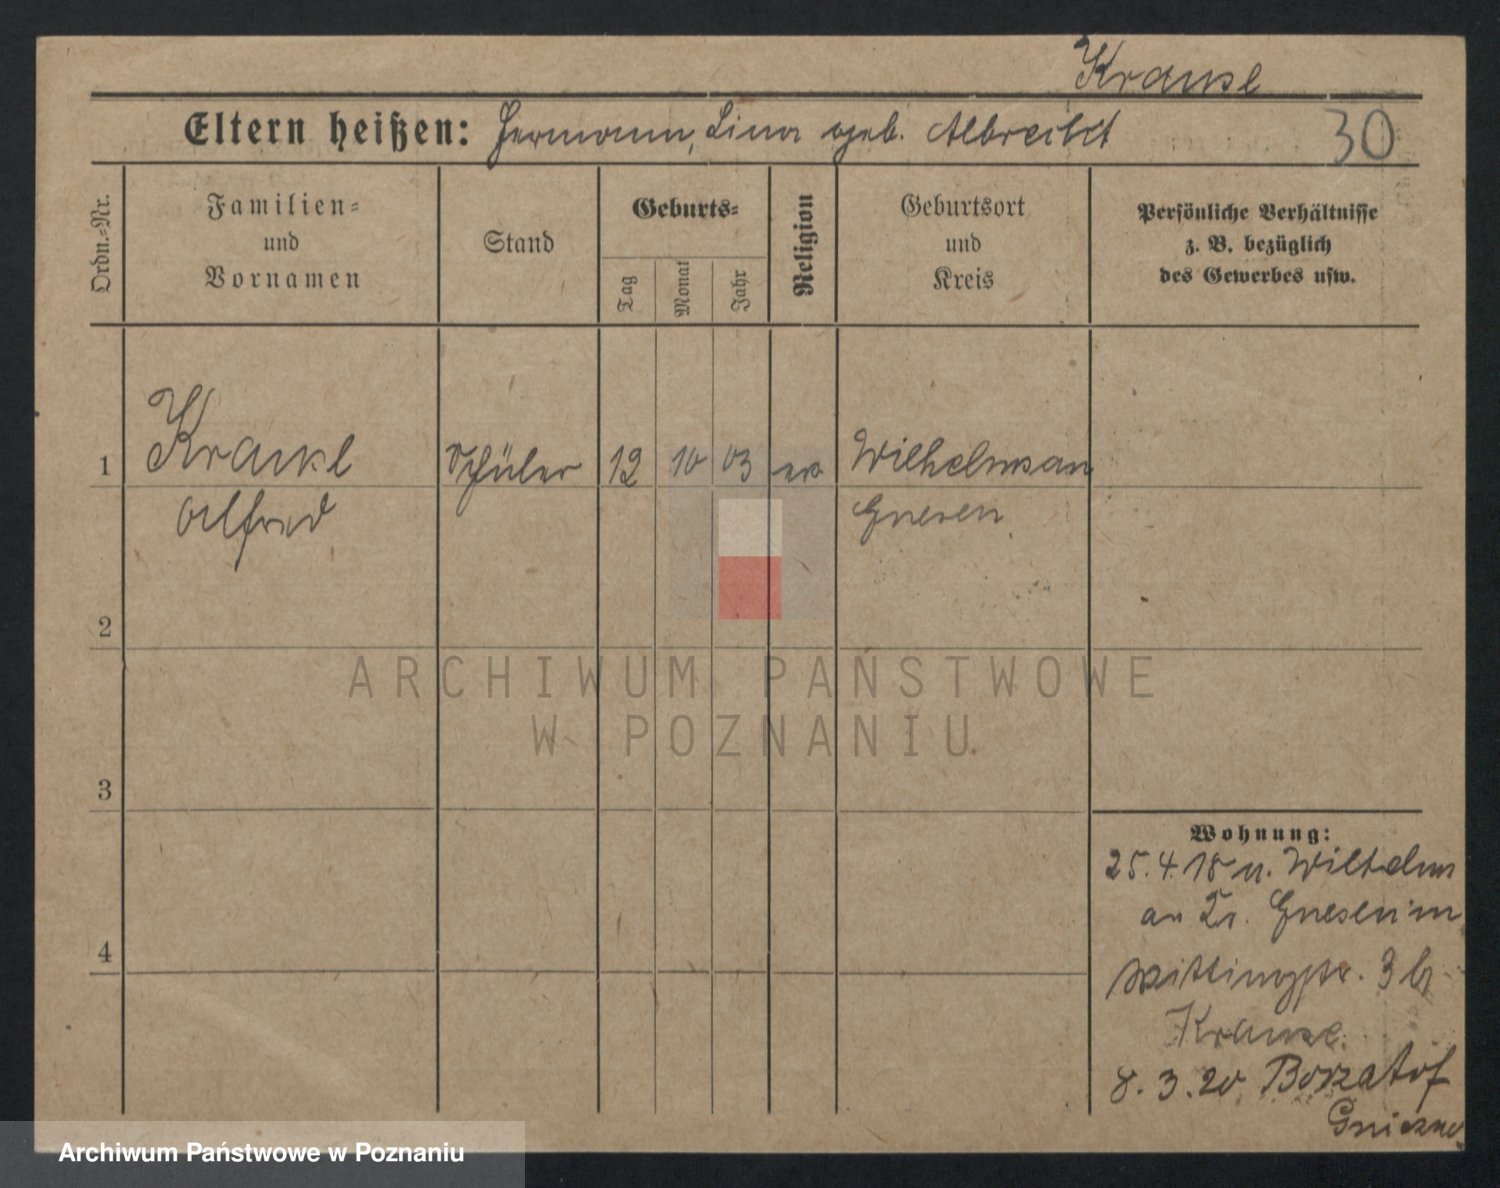 Krause
Eltern heißen: Hermann, Lina geb. Albrecht 30
Ordn.-Nr.
Familien-
und
Vornamen
Stand
Geburts-
Tag
Monat
Jahr
Religion
Geburtsort
und
Kreis
Persönliche Verhältnisse
z. B. bezüglich
des Gewerbes usw.
1 Krause Schüler 12 10 03 Wilhelmsau
Alfred Gnesen
2
3
4
Wohnung:
25.4.18 Wilhelms
au Kr. Gnesen
3
Krause.
8.3.20
Gniezno
ARCHIWUM PAŃSTWOWE
W POZNANIU
Archiwum Państwowe w Poznaniu